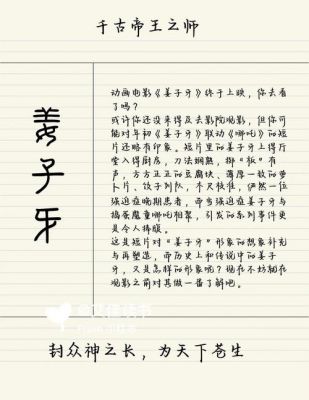 千古帝王之师
姜子牙
动画电影《姜子牙》终于上映，你去看
了吗？
或许你还没来得及去影院观影，但你可
能对年初《姜子牙》联动《哪吒》的短
片还略有印象。短片里的姜子牙上得厅
堂入得厨房，刀法娴熟，掷“板”有
声，方方正正的豆腐块、薄厚一致的萝
卜片、饺子列队，不尺校准，俨然一位
强迫症晚期患者，而当强迫症姜子牙与
捣蛋魔童哪吒相聚，引发的系列事件更
是令人捧腹。
这是短片对“姜子牙”形象的想象补充
与再塑造，而历史上和传说中的姜子
牙，又是怎样的形象呢？现在不妨躺在
观影之前对其做一番了解吧。
封众神之长，为天下苍生